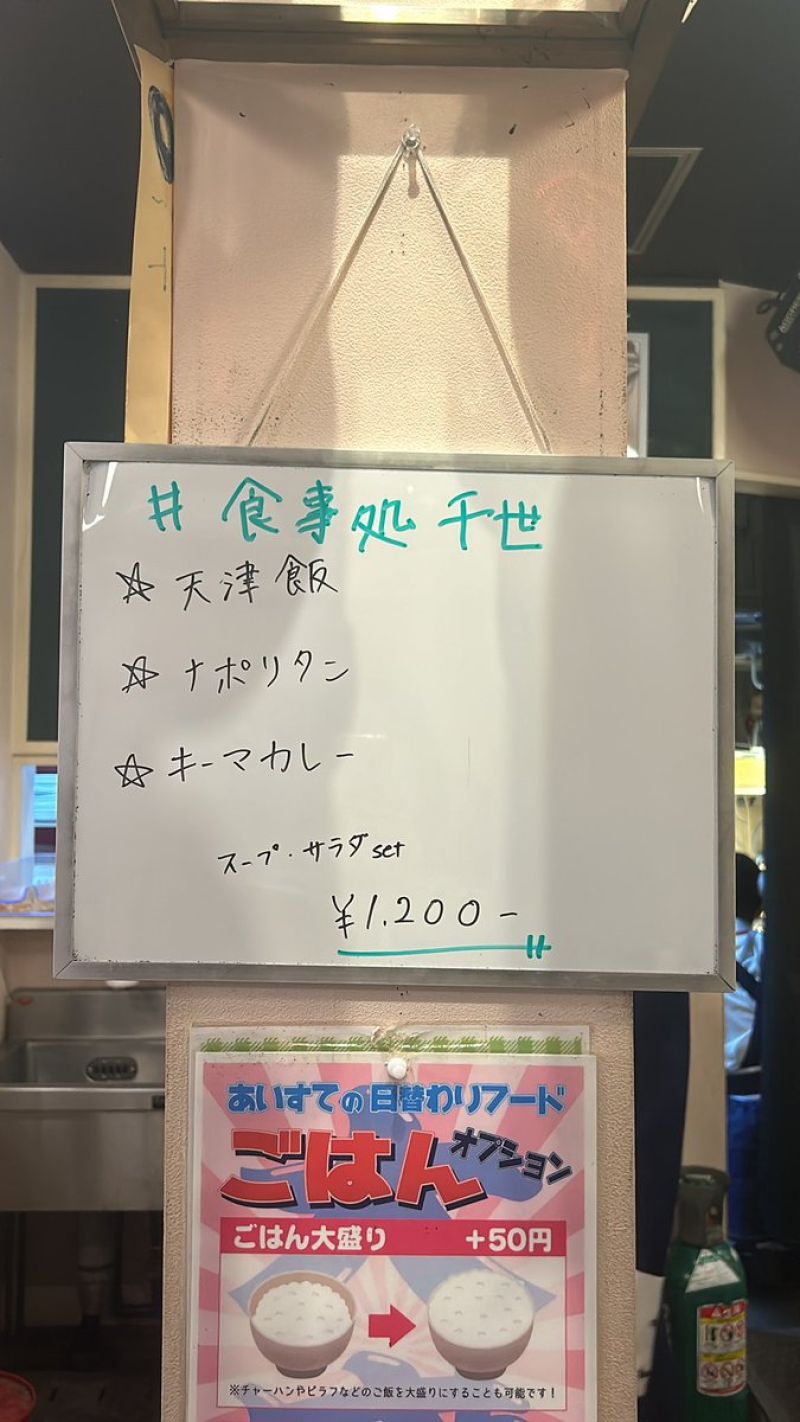 # 食事処 千世
☆ 天津飯
☆ ナポリタン
☆ キーマカレー
スープ・サラダ set
¥1.200-
あいすての日替わりフード
ごはん
オプション
ごはん大盛り +50円
※チャーハンやピラフなどのご飯を大盛りにすることも可能です!